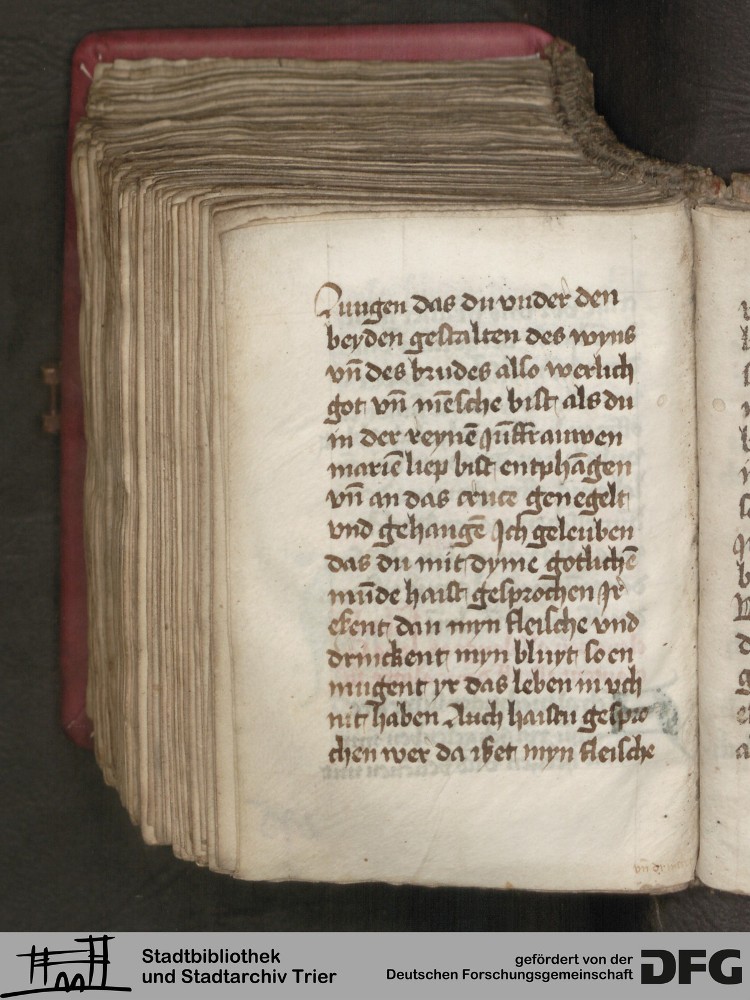 zungen das du vnder den
beyden gestalten des wyns
vn̄ des brudes also werlich
got vn̄ mēsche bist als du
in der reynē jūffrauwen
mariē liep bist entphāgen
vn̄ an das cruce genegelt
vnd gehangē Ich geleuben
das du mit dyme gotlichē
mūde haist gesprochen Ir
eſent dan myn fleische vnd
drinckent myn bluyt so en
mugent yr das leben in uch
nit haben Auch haistu gespro
chen wer da ißet myn fleische
Stadtbibliothek
und Stadtarchiv Trier
gefördert von der
Deutschen Forschungsgemeinschaft
DFG